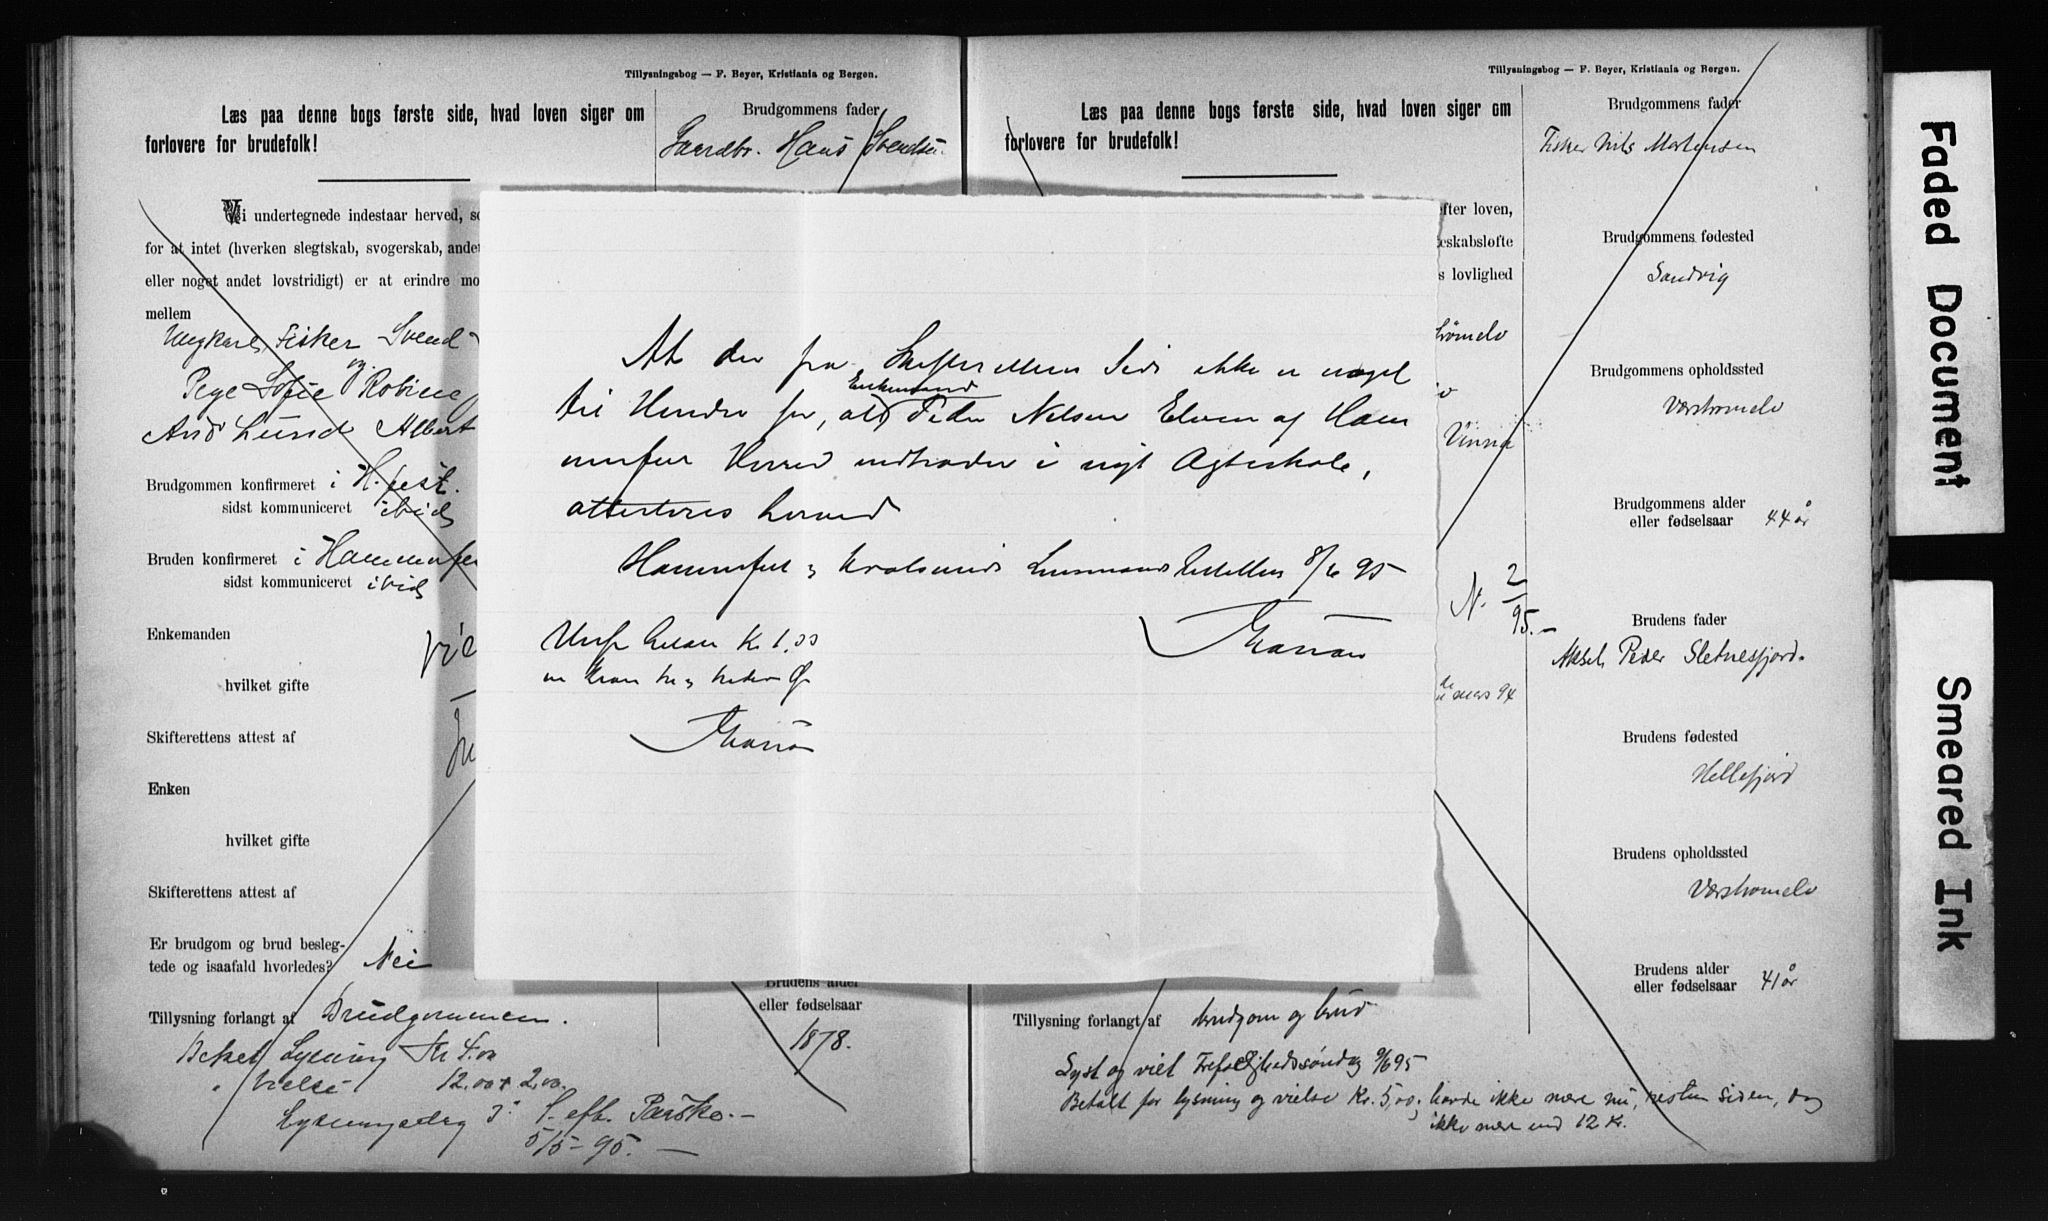 Tillysningsbog — F. Beyer, Kristiania og Bergen.
Læs paa denne bogs første side, hvad loven siger om
forlovere for brudefolk!
Brudgommens fader
Gaardbr. Hans Svendsen
Vi undertegnede indestaar herved, so
for at intet (hverken slegtskab, svogerskab, ande
eller noget andet lovstridigt) er at erindre mo
mellem
Ungkarl, Fisker Svend
og
Pige Sofie Robine
And Lund Albert
Brudgommen konfirmeret i H.fest.
sidst kommuniceret ibid
Bruden konfirmeret i Hammerfe
sidst kommuniceret ibid
Enkemanden
hvilket gifte
Skifterettens attest af
Enken
hvilket gifte
Skifterettens attest af
Er brudgom og brud besleg-
tede og isaafald hvorledes? Nei
Tillysning forlangt af Brudgommen.
Betalt Lysning Kr
" Vielse 12.00 + 2.00
Lysningsdag 3' S. eft. Paaske.—
5/5-95.—
Brudens alder
eller fødselsaar
1878.
At der fra Skifterettens Side ikke er noget
til Hinder for, at Enkemand Peder Nilsen Elven af Ham
merfest Herred indtræder i nyt Ægteskab,
attesteres herved
Hammerfest og Kvalsunds Lensmandsbestilling 8/6 95
Kr. 1.00
Tillysningsbog — F. Beyer, Kristiania og Bergen.
Læs paa denne bogs første side, hvad loven siger om
forlovere for brudefolk!
efter loven,
eskabsløfte
s lovlighed
N. 2/95.—
mars 94
Brudgommens fader
Fisker Nils Mortensen
Brudgommens fødested
Sandvig
Brudgommens opholdssted
Brudgommens alder
eller fødselsaar 44 år
Brudens fader
Aksel Peder Sletnesfjord.
Brudens fødested
Hellefjord
Brudens opholdssted
Brudens alder
eller fødselsaar 41 år
Tillysning forlangt af brudgom og brud
Lyst og viet Trefoldighedssøndag 9/6 95
Betalt for lysning og vielse Kr. 5,00; havde ikke mere nu, resten siden, dog
ikke mere end 12 Kr.
Faded Document
Smeared Ink